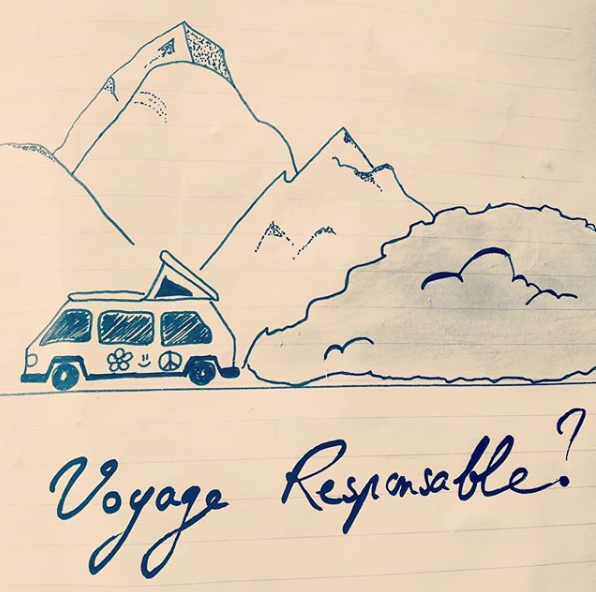 Voyage Responsable?